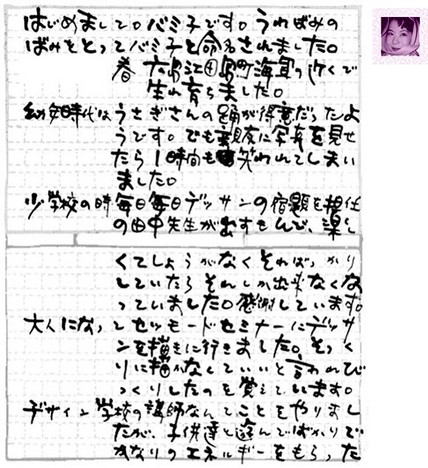 はじめまして。バミ子です。うればみの
ばみをとってバミ子と命名されました。
春 広島江田島町海宜の近くで
生れ育ちました。
幼年時代はうさぎさんの踊が得意だったよ
うです。でも親友に写真を見せ
たら1時間も笑われてしまい
ました。
少学校の時毎日毎日デッサンの宿題を担任
の田中先生が出すもんで、楽し
くてしょうがなくそればっかり
していたらそれしか出来なくな
っていました。感謝しています。
大人になってセツモードセミナーにデッサ
ンを描きに行きました。そっく
りに描かなくていいと言われび
っくりしたのを覚えています。
デザイン学校の講師なんてことをやりまし
たが、子供達と遊んでばかりで
かなりのエネルギーをもらった